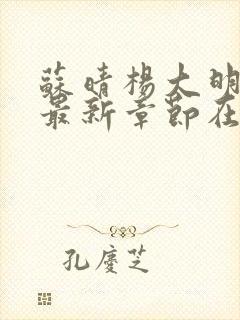 蘇晴楊大明
最新章節在
孔慶芝